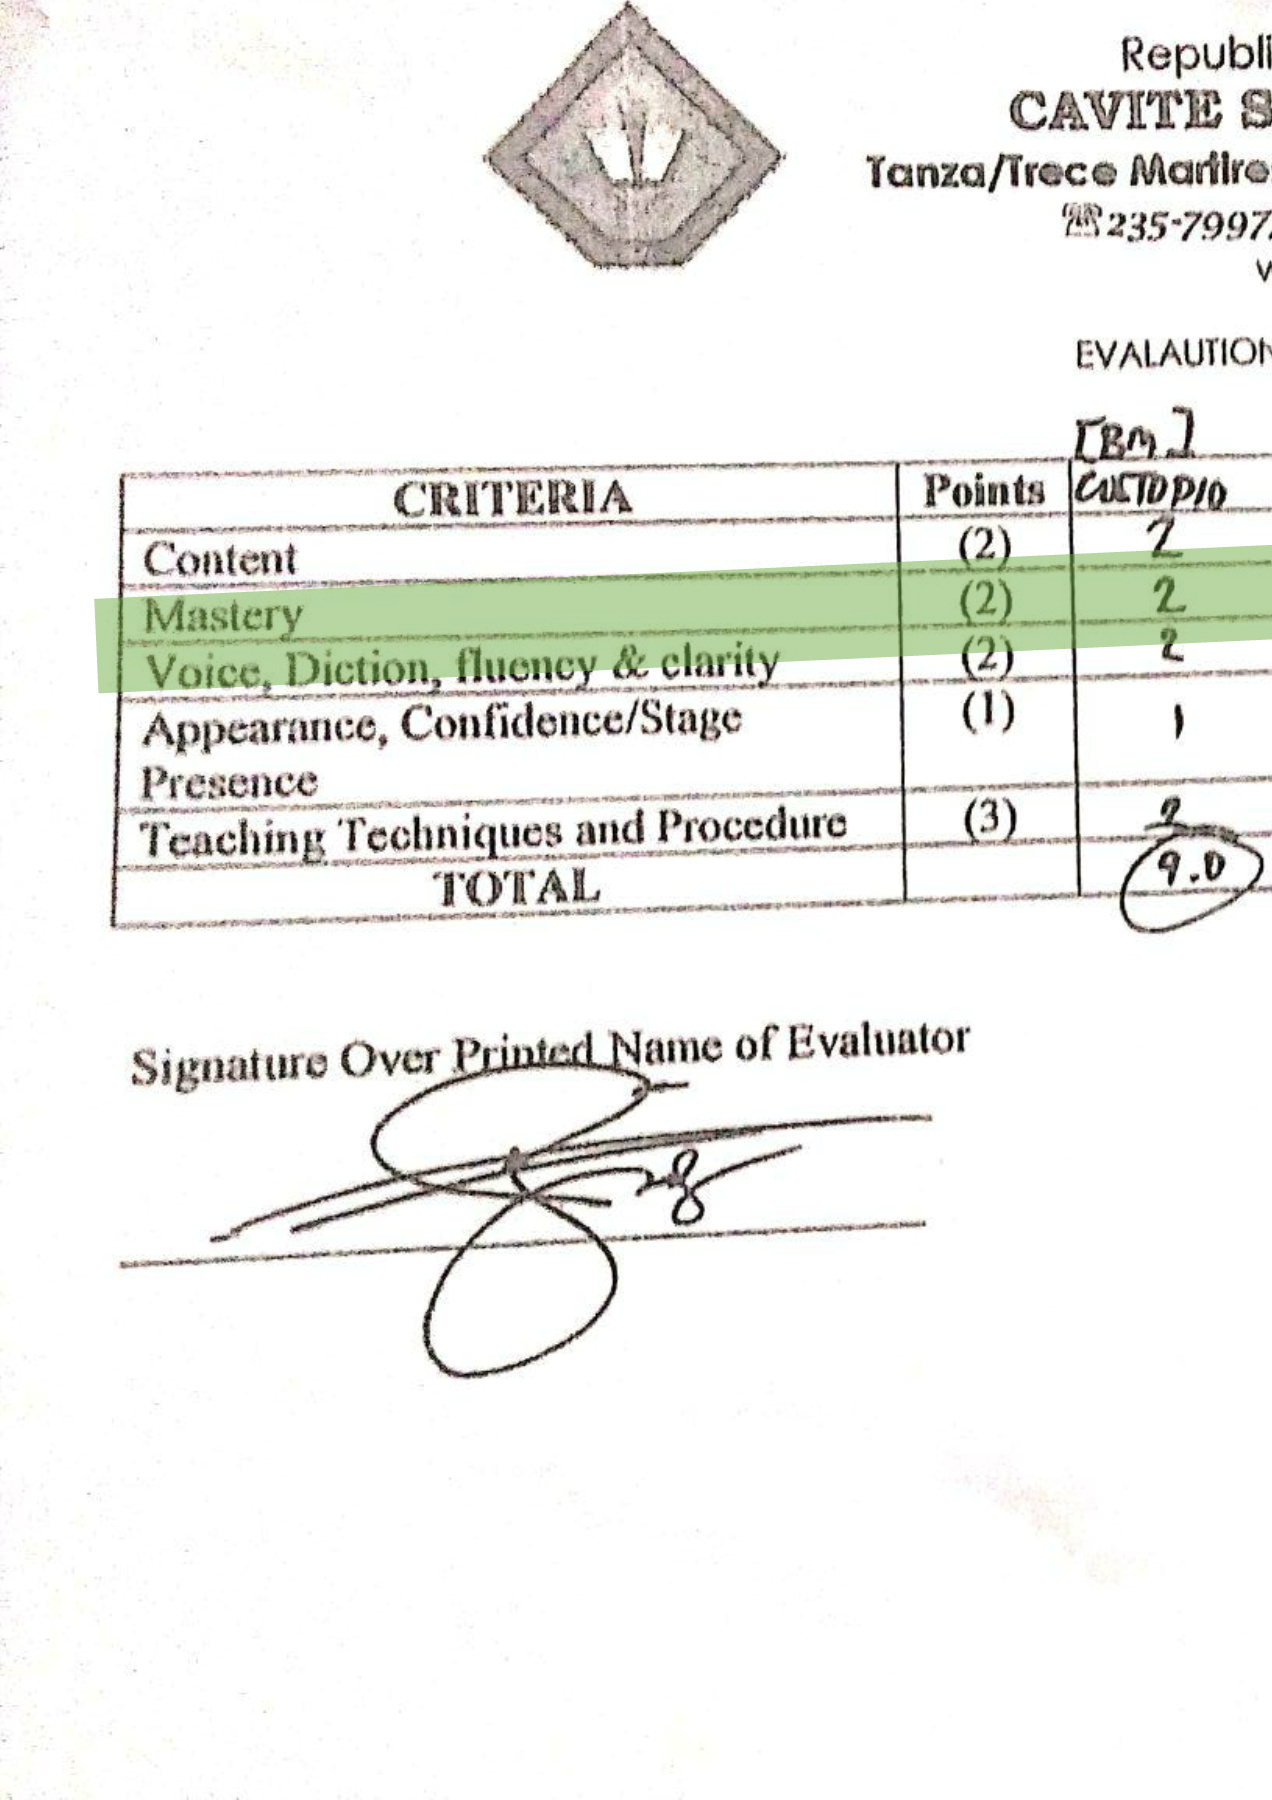 Republi
CAVITE S
Tanza/Trece Martire
☎235-7997
EVALAUTION
[BM]
CRITERIA Points CUSTODIO
Content (2) 2
Mastery (2) 2
Voice, Diction, fluency & clarity (2) 2
Appearance, Confidence/Stage (1) 1
Presence
Teaching Techniques and Procedure (3) 2
TOTAL 9.0
Signature Over Printed Name of Evaluator